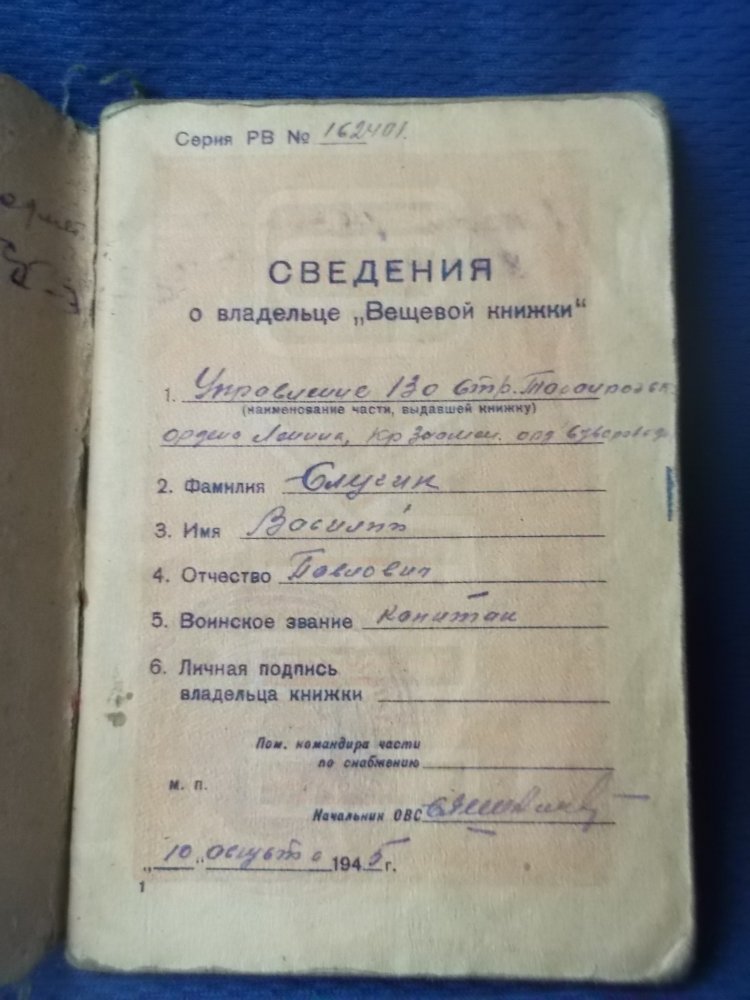 Серия РВ № 162401.
СВЕДЕНИЯ
о владельце „Вещевой книжки“
1. Управление 130 стр.
(наименование части, выдавшей книжку)
ордена Ленина, Кр Знамен. орд
2. Фамилия
3. Имя Василий
4. Отчество Павлович
5. Воинское звание капитан
6. Личная подпись
владельца книжки
Пом. командира части
по снабжению
м. п.
Начальник ОВС
„10“ августа 1945 г.
1